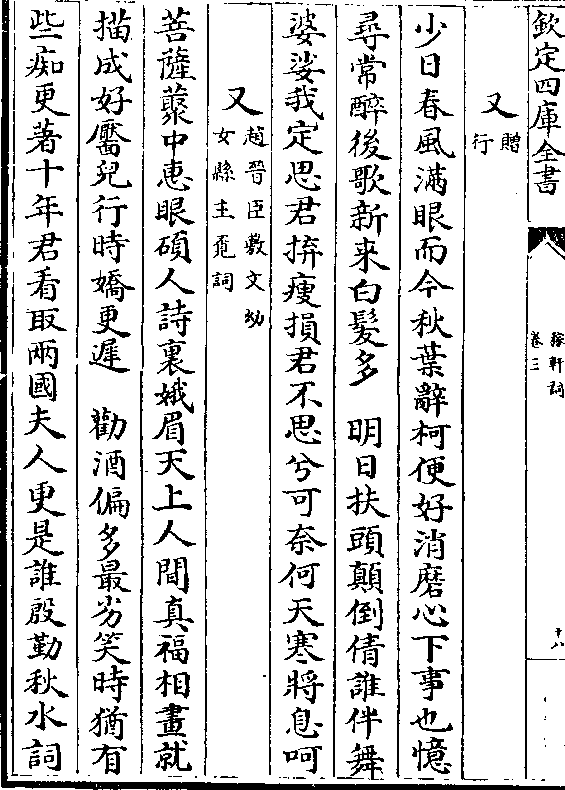 欽定四庫全書
稼軒詞
卷三
十八
又
贈
行
少日春風滿眼而今秋葉辭柯便好消磨心下事也憶
尋常醉後歌新來白髮多　明日扶頭顛倒倩誰伴舞
婆娑我定思君拚瘦損君不思兮可奈何天寒將息呵
又
趙晉臣敷文幼
女縣主覓詞
菩薩藂中惠眼碩人詩裏娥眉天上人間真福相畫就
描成好靨兒行時嬌更遲　勸酒偏多最劣笑時猶有
些痴更著十年君看取兩國夫人更是誰殷勤秋水詞